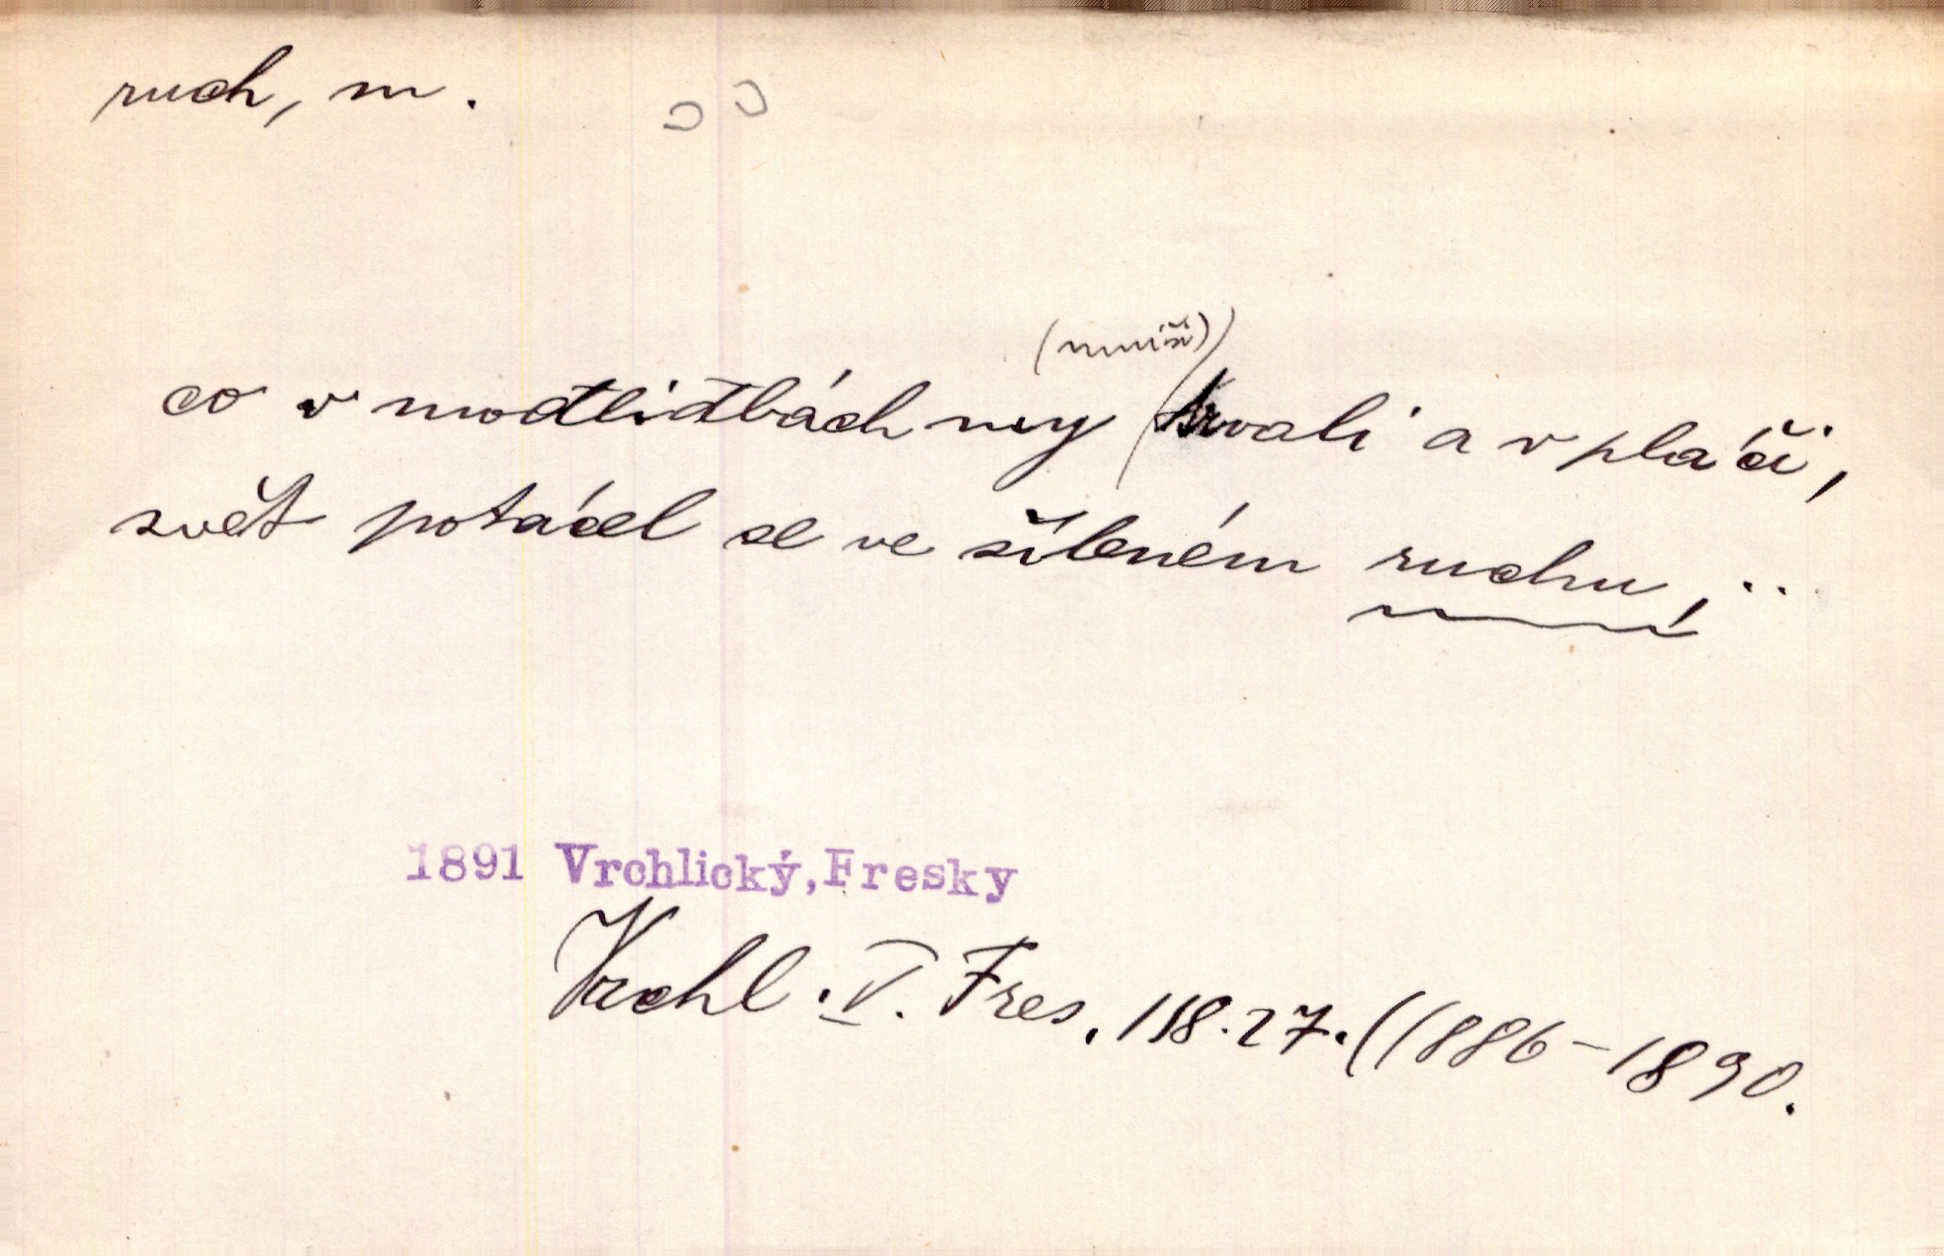 ruch, m.
(mniši)
co v modlidbách my trvali a v pláči,
svět potácel se ve šíleném ruchu, ..
1891 Vrchlický,Fresky
Vrchl. V. Fres. 118.27. (1886-1890.